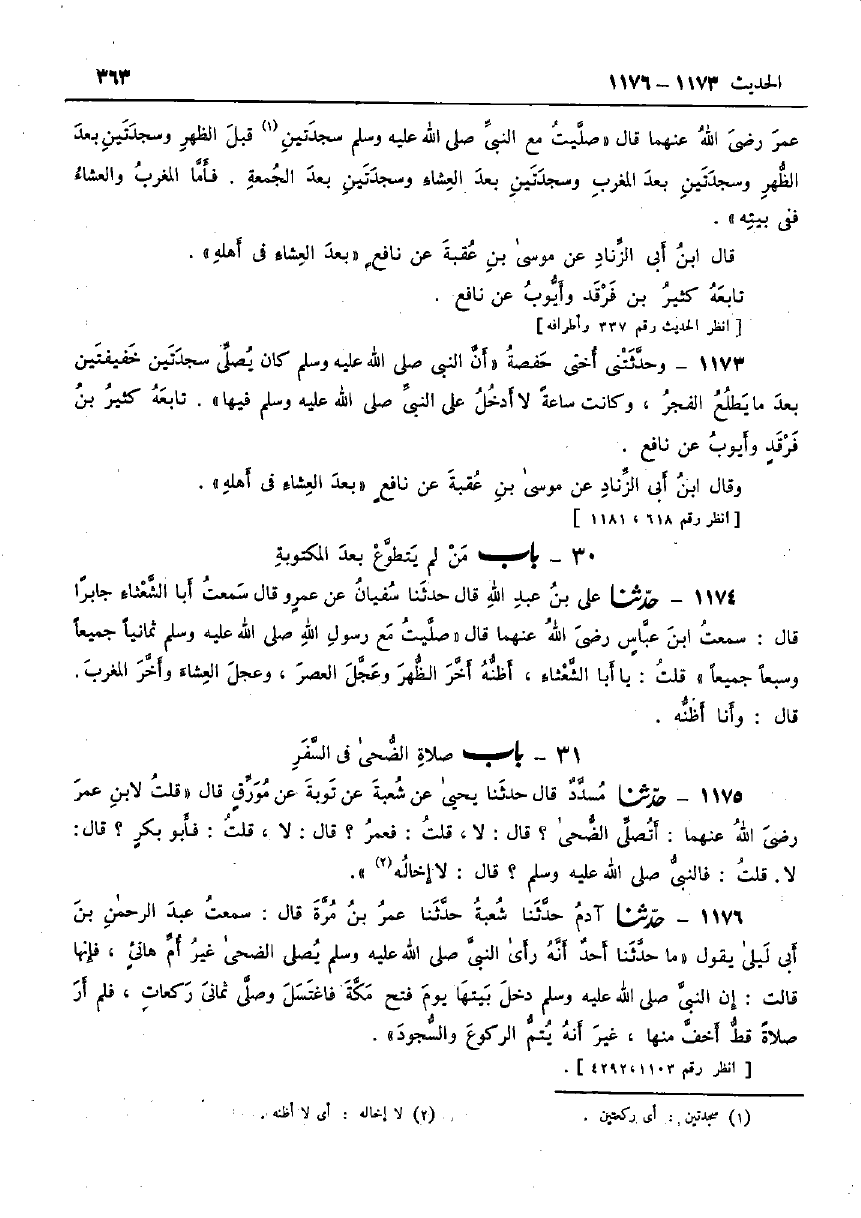 الحديث ١١٧٣ – ١١٧٦ ٣٦٣
عمرَ رضىَ اللهُ عنهما قال «صلَّيتُ مع النبىِّ صلى الله عليه وسلم سجدَتينِ(١) قبلَ الظهرِ وسجدَتَينِ بعدَ
الظُّهرِ وسجدَتَينِ بعدَ المغربِ وسجدَتَينِ بعدَ العِشاءِ وسجدَتَينِ بعدَ الجُمعةِ . فأمَّا المغربُ والعشاءُ
ففى بيتِه» .
قال ابنُ أبى الزِّنادِ عن موسىٰ بنِ عُقبةَ عن نافعٍ «بعدَ العِشاءِ فى أهلهِ» .
تابعَهُ كثيرُ بن فَرْقَد وأَيُّوبُ عن نافع .
[ انظر الحديث رقم ٣٣٧ وأطرافه]
١١٧٣ – وحدَّثَتْنى أُختى حَفصةُ «أنَّ النبى صلى الله عليه وسلم كان يُصلِّى سجدَتَين خَفيفتَين
بعدَ ما يَطلُعُ الفجرُ ، وكانت ساعةً لا أدخُلُ على النبىِّ صلى الله عليه وسلم فيها» . تابعَهُ كثيرُ بنُ
فَرْقَدٍ وأيوبُ عن نافع .
وقال ابنُ أبى الزِّنادِ عن موسىٰ بنِ عُقبةَ عن نافعٍ «بعدَ العِشاءِ فى أهلهِ» .
[ انظر رقم ٦١٨ ، ١١٨١ ]
٣٠ – باب مَنْ لم يَتطوَّعْ بعدَ المكتوبةِ
١١٧٤ – حدّثنا على بنُ عبدِ اللهِ قال حدثَنا سُفيانُ عن عمرٍو قال سَمعتُ أبا الشَّعْثاءِ جابرًا
قال : سمعتُ ابنَ عبَّاسٍ رضىَ اللهُ عنهما قال «صلَّيتُ مَع رسولِ اللهِ صلى الله عليه وسلم ثمانياً جميعاً
وسبعاً جميعاً» قلتُ : يا أبا الشَّعْثاءِ ، أظنُّهُ أخَّرَ الظُّهرَ وعَجَّلَ العصرَ ، وعجلَ العِشاءَ وأخَّرَ المغربَ.
قال : وأنا أظنُّه .
٣١ – باب صلاةِ الضُّحىٰ فى السَّفَرِ
١١٧٥ – حدّثنا مُسدَّدٌ قال حدثَنا يحيىٰ عن شُعبةَ عن تَوبةَ عن مُوَرِّقٍ قال «قلتُ لابنِ عمرَ
رضىَ اللهُ عنهما : أتُصلِّى الضُّحىٰ ؟ قال : لا ، قلتُ : فعمرُ ؟ قال : لا ، قلتُ : فأبو بكرٍ ؟ قال:
لا. قلتُ : فالنبىُّ صلى الله عليه وسلم ؟ قال : لا إخالُه(٢) ».
١١٧٦ – حدّثنا آدمُ حدَّثَنا شُعبةُ حدَّثَنا عمرُ بنُ مُرَّةَ قال : سمعتُ عبدَ الرحمٰنِ بنَ
أبى لَيلىٰ يقول «ما حدَّثَنا أحدٌ أنَّهُ رأىٰ النبىَّ صلى الله عليه وسلم يُصلى الضحىٰ غيرُ أُمِّ هانئٍ ، فإنها
قالت : إن النبىَّ صلى الله عليه وسلم دخلَ بَيتَها يومَ فتح مَكَّةَ فاغتَسَلَ وصلَّى ثمانىَ رَكعاتٍ ، فلم أَرَ
صلاةً قطُّ أخفَّ منها ، غيرَ أنهُ يُتمُّ الركوعَ والسُّجودَ» .
[ انظر رقم ١١٠٣، ٤٢٩٢ ] .
(١) سجدتين : أى ركعتين . (٢) لا إخاله : أى لا أظنه .